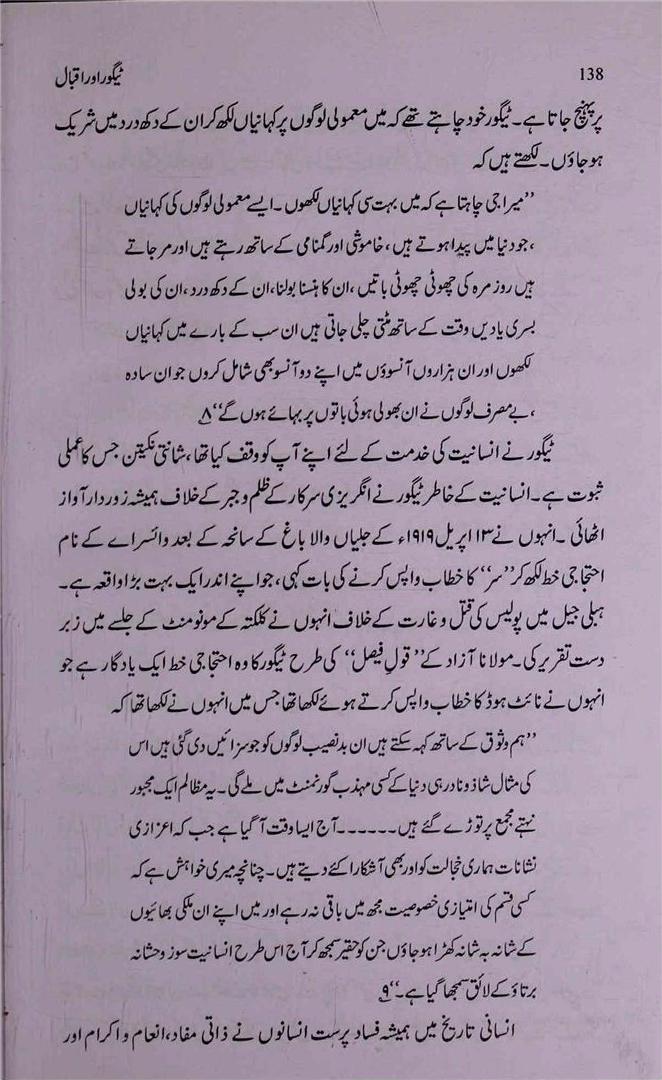 138
ٹیگور اور اقبال
پر پہنچ جاتا ہے۔ ٹیگور خود چاہتے تھے کہ میں معمولی لوگوں پر کہانیاں لکھ کر ان کے دکھ درد میں شریک
ہو جاؤں۔ لکھتے ہیں کہ
”میرا جی چاہتا ہے کہ میں بہت سی کہانیاں لکھوں۔ ایسے معمولی لوگوں کی کہانیاں
،جو دنیا میں پیدا ہوتے ہیں، خاموشی اور گمنامی کے ساتھ رہتے ہیں اور مر جاتے
ہیں روز مرہ کی چھوٹی چھوٹی باتیں، ان کا ہنسنا بولنا، ان کے دکھ درد، ان کی بولی
بسری یادیں وقت کے ساتھ مٹتی چلی جاتی ہیں ان سب کے بارے میں کہانیاں
لکھوں اور ان ہزاروں آنسوؤں میں اپنے دو آنسو بھی شامل کروں جو ان سادہ
،بے مصرف لوگوں نے ان بھولی ہوئی باتوں پر بہائے ہوں گے“ ۸
ٹیگور نے انسانیت کی خدمت کے لئے اپنے آپ کو وقف کیا تھا، شانتی نکیتن جس کا عملی
ثبوت ہے۔ انسانیت کے خاطر ٹیگور نے انگریزی سرکار کے ظلم و جبر کے خلاف ہمیشہ زوردار آواز
اٹھائی۔ انہوں نے ۱۳ اپریل ۱۹۱۹ء کے جلیاں والا باغ کے سانحہ کے بعد وائسرائے کے نام
احتجاجی خط لکھ کر ”سر“ کا خطاب واپس کرنے کی بات کہی، جو اپنے اندر ایک بہت بڑا واقعہ ہے۔
ہبلی جیل میں پولیس کی قتل و غارت کے خلاف انہوں نے کلکتہ کے مونومنٹ کے جلسے میں زبر
دست تقریر کی۔ مولانا آزاد کے ”قولِ فیصل“ کی طرح ٹیگور کا وہ احتجاجی خط ایک یادگار ہے جو
انہوں نے نائٹ ہوڈ کا خطاب واپس کرتے ہوئے لکھا تھا جس میں انہوں نے لکھا تھا کہ
”ہم وثوق کے ساتھ کہہ سکتے ہیں ان بدنصیب لوگوں کو جو سزائیں دی گئی ہیں اس
کی مثال شاذ و نادر ہی دنیا کے کسی مہذب گورنمنٹ میں ملے گی۔ یہ مظالم ایک مجبور
نہتے مجمع پر توڑے گئے ہیں۔۔۔۔۔۔ آج ایسا وقت آ گیا ہے جب کہ اعزازی
نشانات ہماری خجالت کو اور بھی آشکارا کئے دیتے ہیں۔ چنانچہ میری خواہش ہے کہ
کسی قسم کی امتیازی خصوصیت مجھ میں باقی نہ رہے اور میں اپنے ان ملکی بھائیوں
کے شانہ بہ شانہ کھڑا ہو جاؤں جن کو حقیر سمجھ کر آج اس طرح انسانیت سوز و حشانہ
برتاؤ کے لائق سمجھا گیا ہے۔“ ۹
انسانی تاریخ میں ہمیشہ فساد پرست انسانوں نے ذاتی مفاد، انعام و اکرام اور